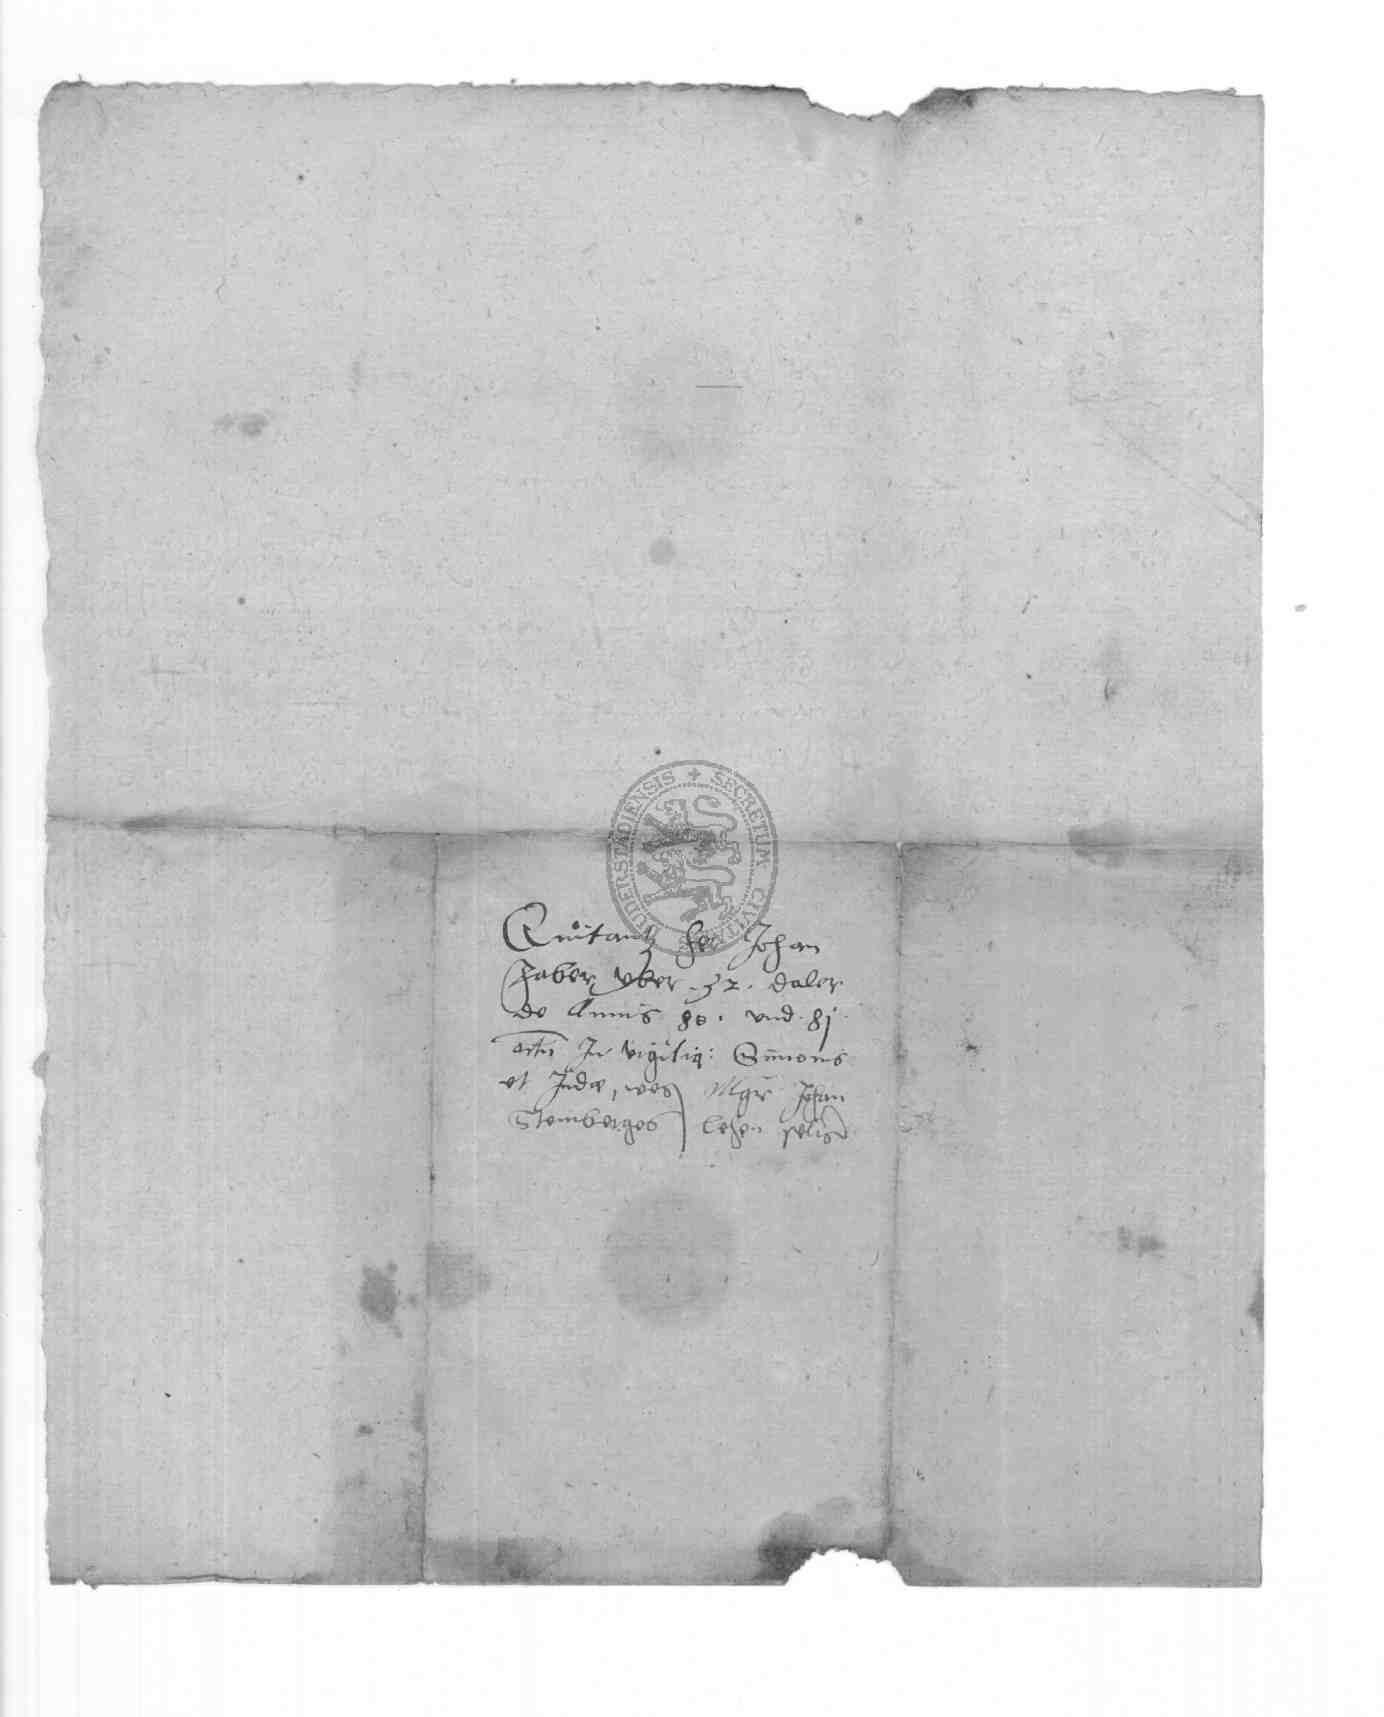 SECRETUM CIVITATIS DUDERSTADIENSIS
Quitantz he͠ Johan
Faber vber 32. daler
de Annis 80. vnd 81
In vigilia: Simonis
et Judæ, wes Mgr͠ Johan
Stemberges lehen